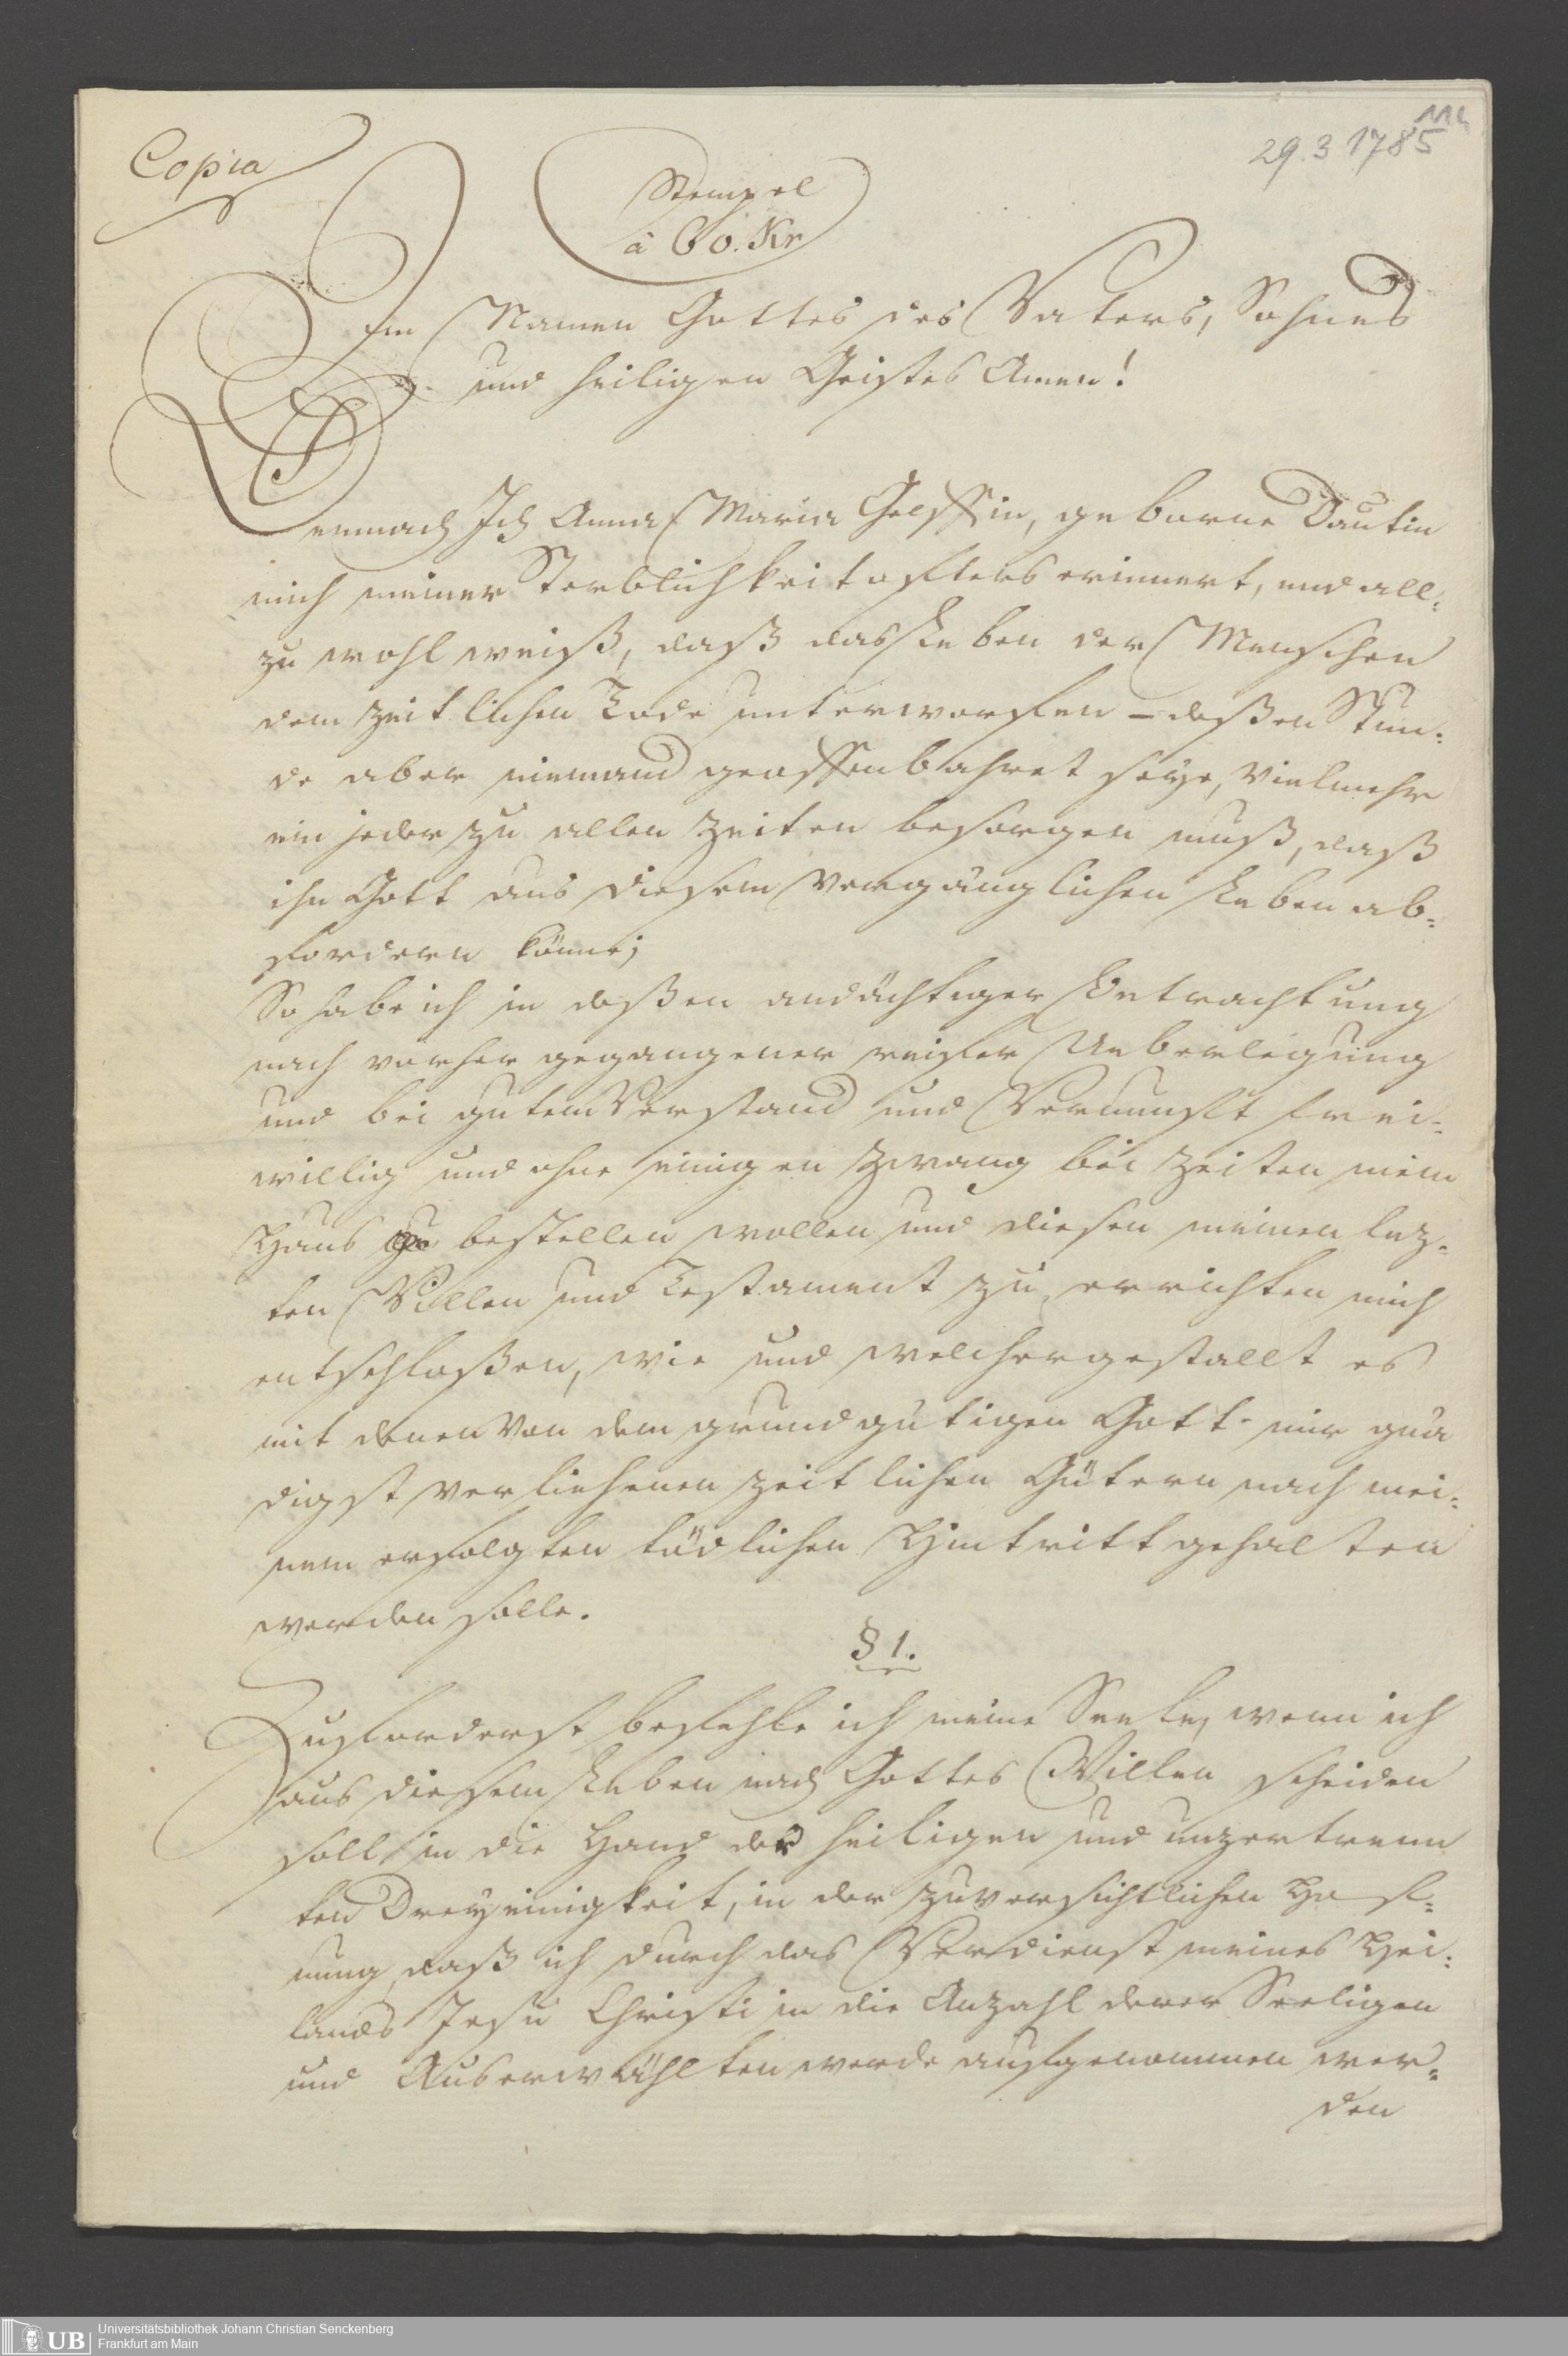 Copia
114
29.3 1785
Stempel
à 60. Kr
Im Namen Gottes des Vaters, Sohnes
und heiligen Geistes Amen!
Demnach Ich Anna Maria Gelffin, geborne Dautin
mich meiner Sterblichkeit öfters erinnert, und all:
zu wohl weiß, daß das Leben der Menschen
dem zeitlichen Tode unterworfen – deßen Stun:
de aber niemand geoffenbahret seye, vielmehr
ein jeder zu allen Zeiten besorgen muß, daß
ihn Gott aus diesem vergänglichen Leben ab:
fordern könne;
So habe ich in deßen andächtiger Betrachtung
nach vorher gegangener reifer Ueberlegung
und bei gutem Verstand und Vernunft frei:
willig und ohne einigen Zwang bei Zeiten mein
Haus zu bestellen wollen und diesen meinen lez:
ten Willen und Testament zu errichten mich
entschloßen, wie und welchergestallt es
mit denen von dem grundgütigen Gott mir gnä
digst verliehenen zeitlichen Gütern nach mei:
nem erfolgten tödlichen Hintritt gehalten
werden solle.
§ 1.
Zuforderst befehle ich meine Seele, wenn ich
aus diesem Leben nach Gottes Willen scheiden
soll in die Hand der heiligen und unzertrenn
ten Dreyeinigkeit, in der zuversichtlichen Hof:
nung daß ich durch das Verdienst meines Hei:
lands Jesu Christi in die Anzahl derer Seeligen
und Auserwählten werde aufgenommen wer:
den
Universitätsbibliothek Johann Christian Senckenberg
Frankfurt am Main
UB